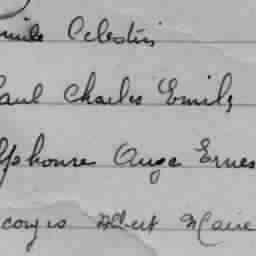 mile Celestin
Paul Charles Emile
lphonse Ange Ernes
eorges Albert Marie